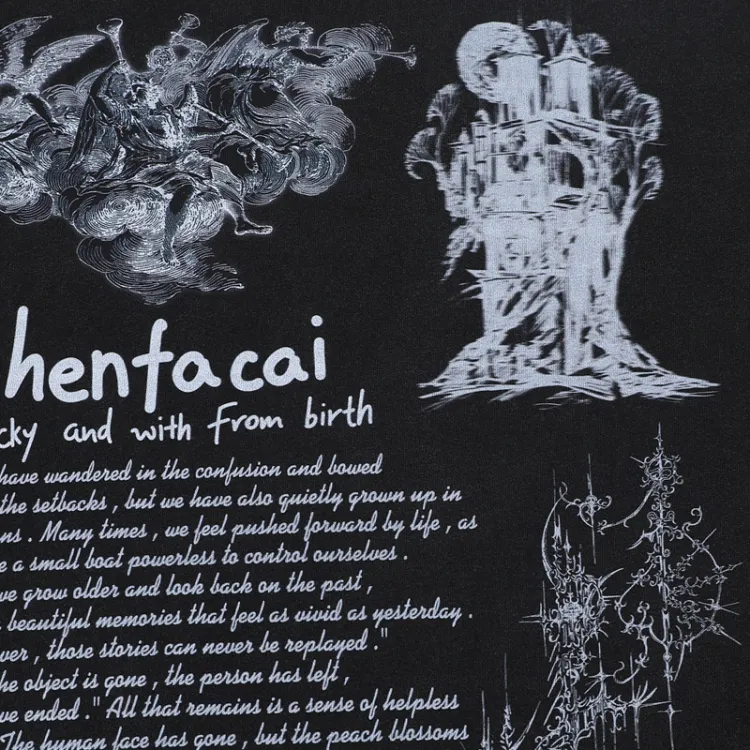 hentacai
cky and with from birth
have wandered in the confusion and bowed
the setbacks , but we have also quietly grown up in
ns . Many times , we feel pushed forward by life , as
e a small boat powerless to control ourselves .
we grow older and look back on the past ,
beautiful memories that feel as vivid as yesterday .
ver , those stories can never be replayed ."
he object is gone , the person has left ,
ve ended ." All that remains is a sense of helpless
The human face has gone , but the peach blossoms